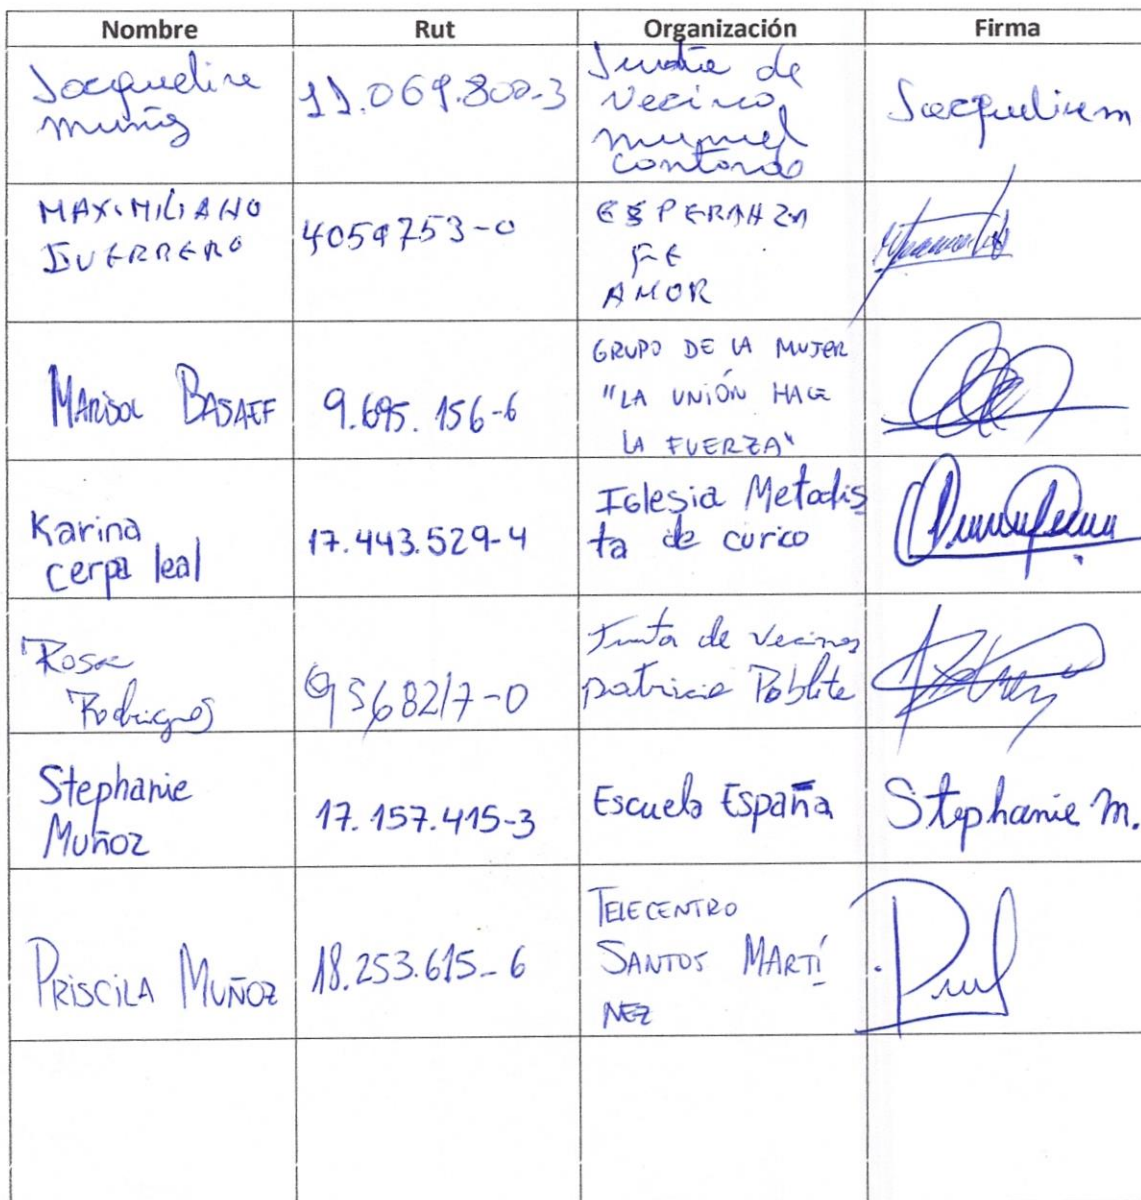 Nombre Rut Organización Firma
Jacqueline
Muñoz
11.069.800-3
Junta de
Vecino
Manuel
Contardo
Jacqueline m
MAXIMILIANO
GUERRERO
4059753-0
ESPERANZA
FE
AMOR
MARISOL BASAEF
9.695.156-6
GRUPO DE LA MUJER
"LA UNIÓN HACE
LA FUERZA"
Karina
cerpa leal
17.443.529-4
Iglesia Metodis
ta de curico
Rosa
Rodriguez
9568217-0
Junta de vecinos
patricio Poblete
Stephanie
Muñoz
17.157.415-3
Escuela España
Stephanie M.
PRISCILA MUÑOZ
18.253.615-6
TELECENTRO
SANTOS MARTÍ
NEZ